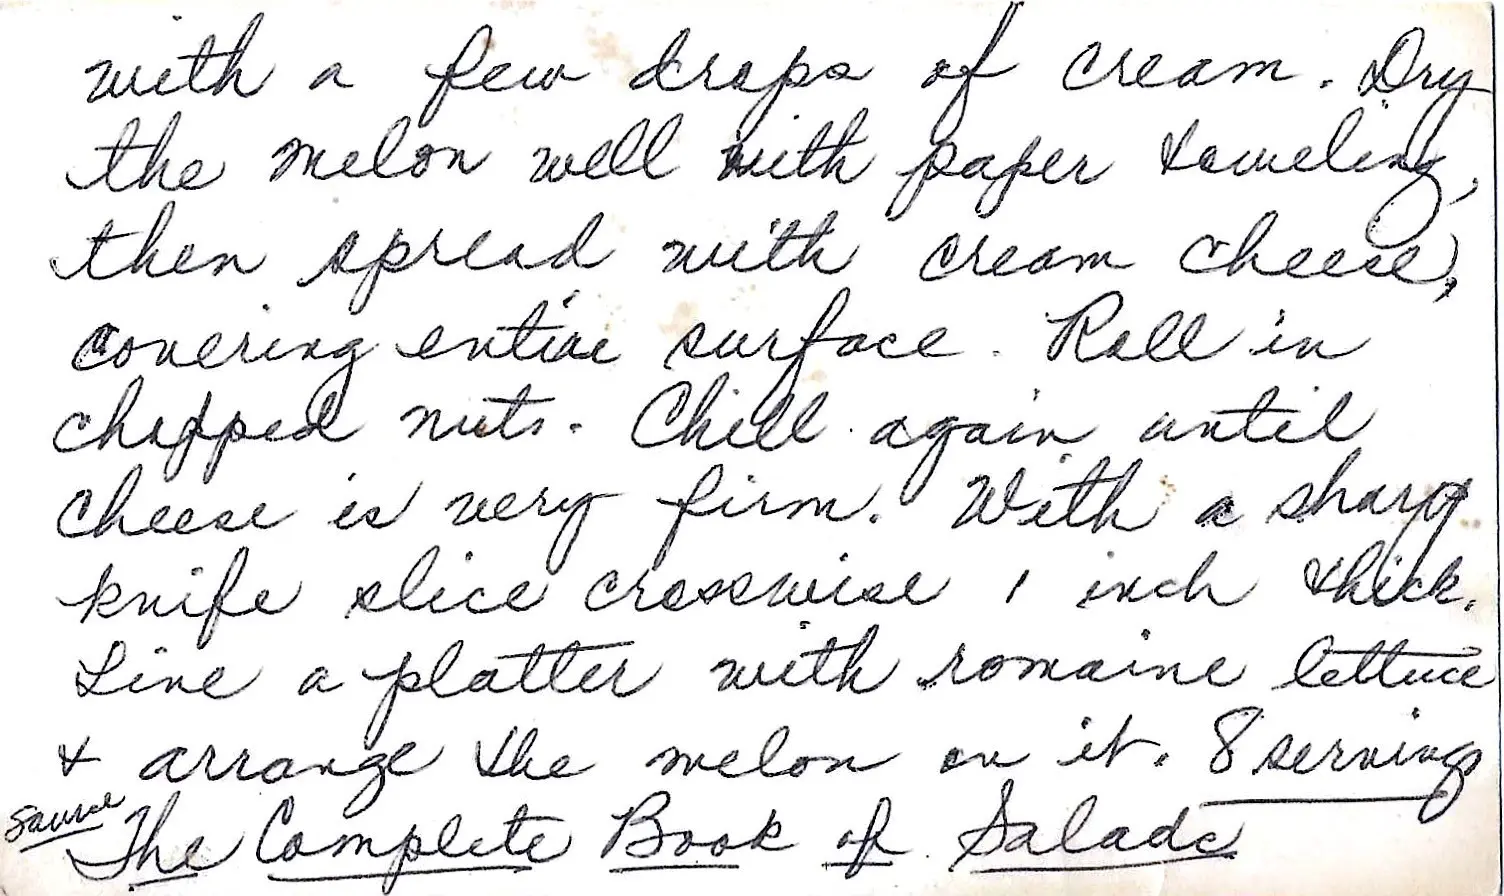 with a few drops of cream. Dry
the melon well with paper toweling,
then spread with cream cheese,
covering entire surface. Roll in
chopped nuts. Chill again until
cheese is very firm. With a sharp
knife slice crosswise 1 inch thick.
Line a platter with romaine lettuce
& arrange the melon on it. 8 servings
Source The Complete Book of Salads